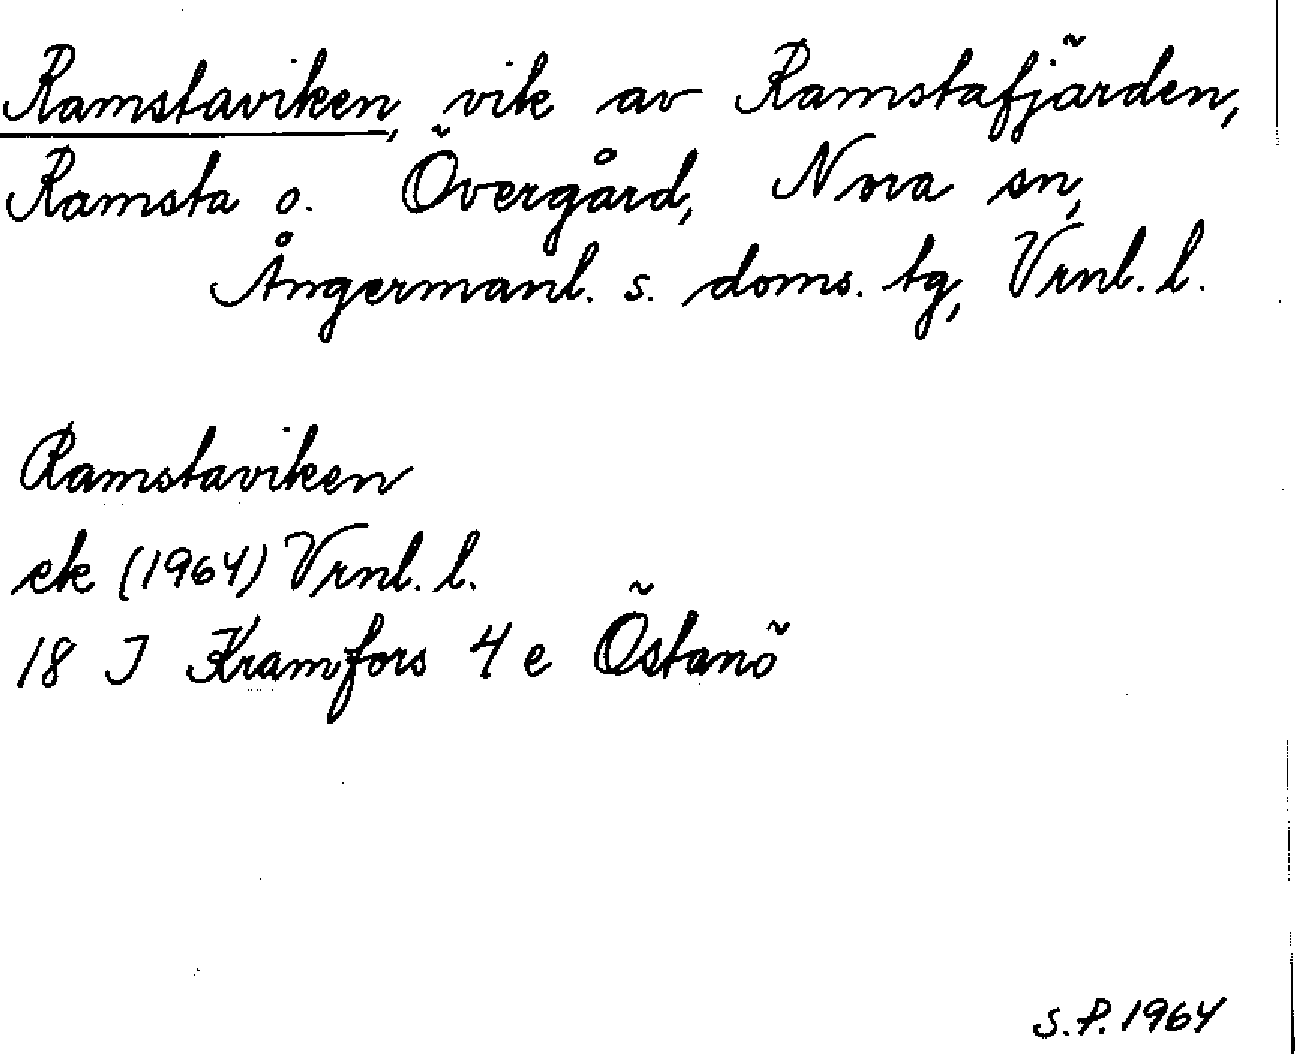 Ramstaviken, vik av Ramstafjärden,
Ramsta o. Övergård, Nora sn,
Ångermanl. s. doms. tg, Vrnl. l.
Ramstaviken
ek (1964) Vrnl. l.
18 J Kramfors 4 e Östanö
S.P. 1964